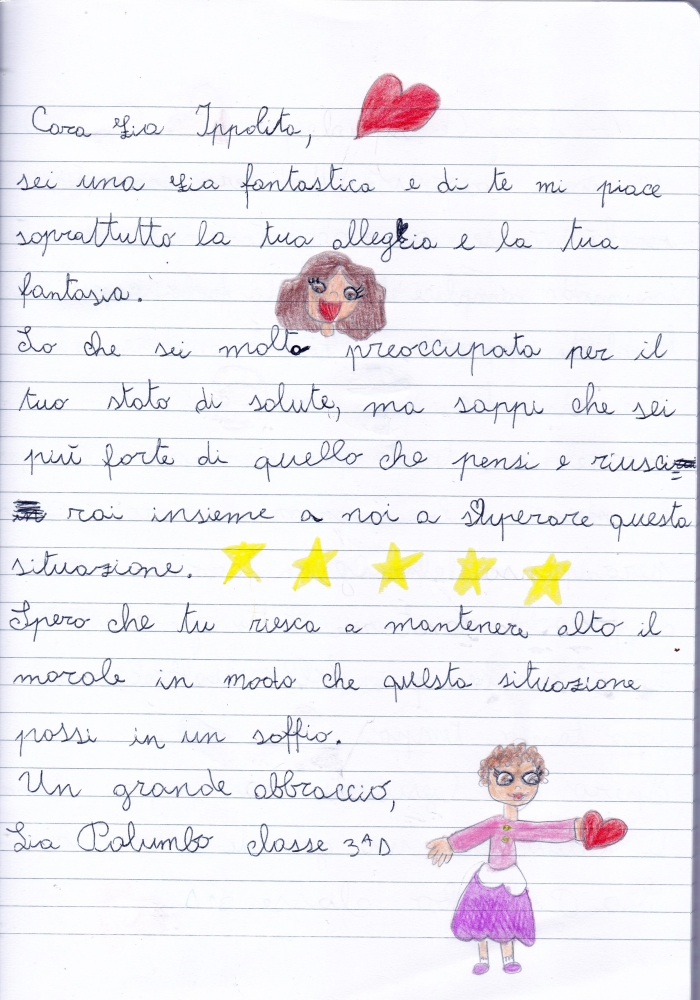 Cara zia Ippolita,
sei una zia fantastica e di te mi piace
soprattutto la tua allegria e la tua
fantasia.
So che sei molto preoccupata per il
tuo stato di salute, ma sappi che sei
più forte di quello che pensi e riusci
rai insieme a noi a superare questa
situazione.
Spero che tu riesca a mantenere alto il
morale in modo che questa situazione
passi in un soffio.
Un grande abbraccio,
Lia Palumbo classe 3ᴬD